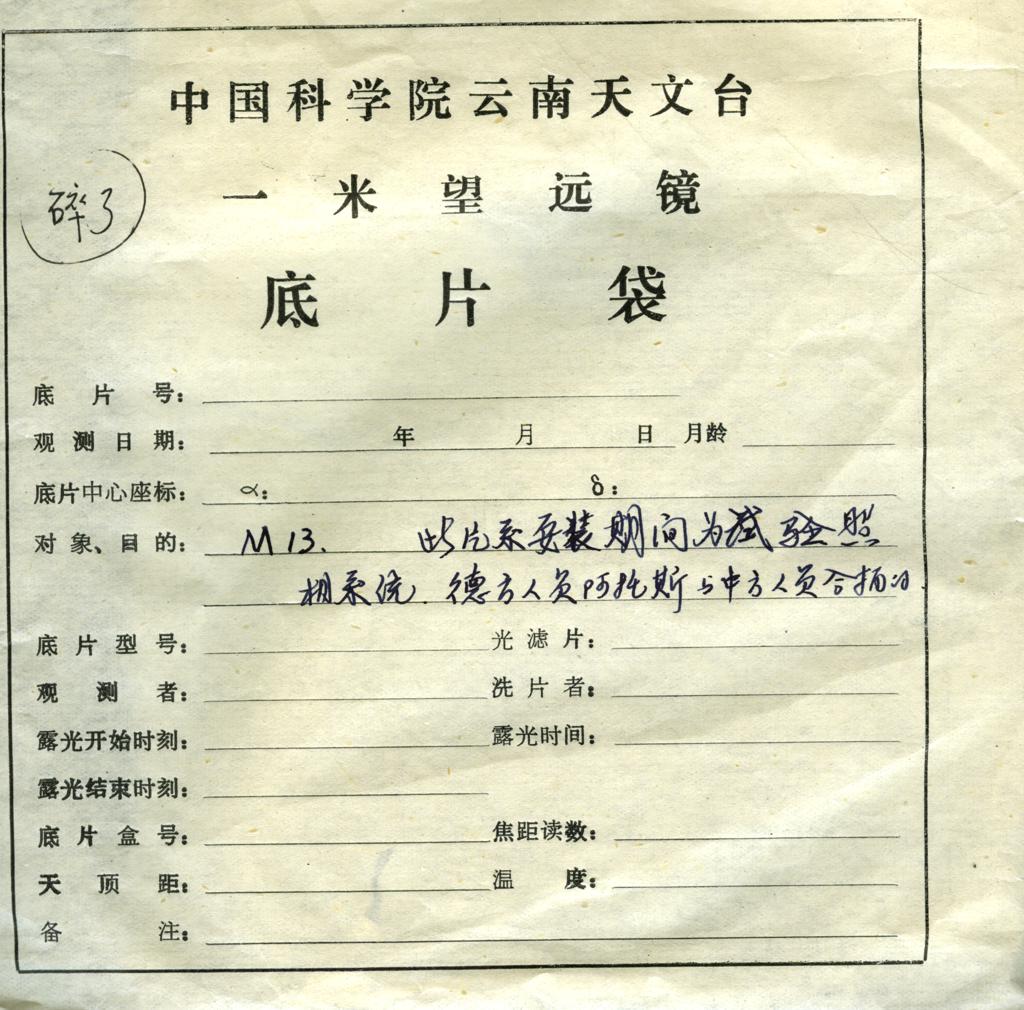 中国科学院云南天文台
碎了
一米望远镜
底片袋
底片号：
观测日期： 年 月 日 月龄
底片中心座标： α： δ：
对象、目的： M13. 此片系安装期间为试验照
相系统. 德方人员阿托斯与中方人员合拍的.
底片型号： 光滤片：
观测者： 洗片者：
露光开始时刻： 露光时间：
露光结束时刻：
底片盒号： 焦距读数：
天顶距： 温度：
备注：